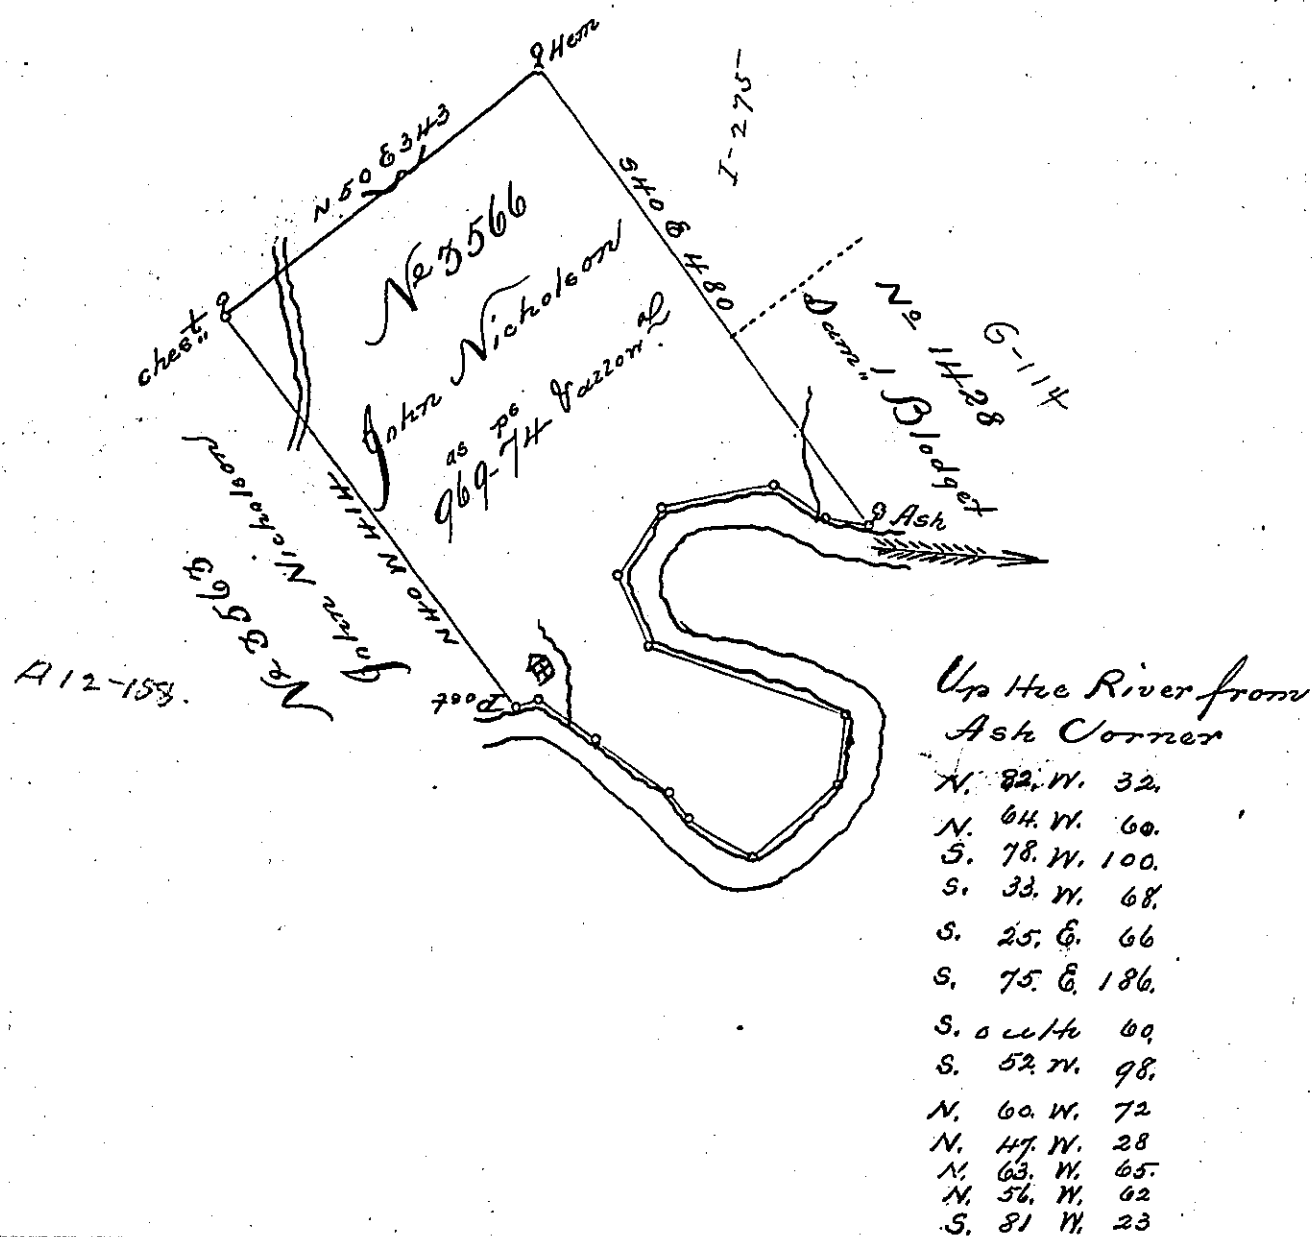 Hem
I-275
N 50 E 343
S 40 E 480
No 3566
John Nicholson
as ps
969-74
chest.
No 1428
Dam.l Blodget
G-114
Ash
N 40 W 414
John Nicholson
A12-158.
Up the River from
Ash Corner
N. 82. W. 32.
N. 64. W. 60.
S. 78. W. 100.
S. 33. W. 68.
S. 25. E. 66
S. 75. E. 186.
South 60.
S. 52. W. 98.
N. 60. W. 72
N. 47. W. 28
N. 63. W. 65.
N. 56. W. 62
S. 81 W. 23